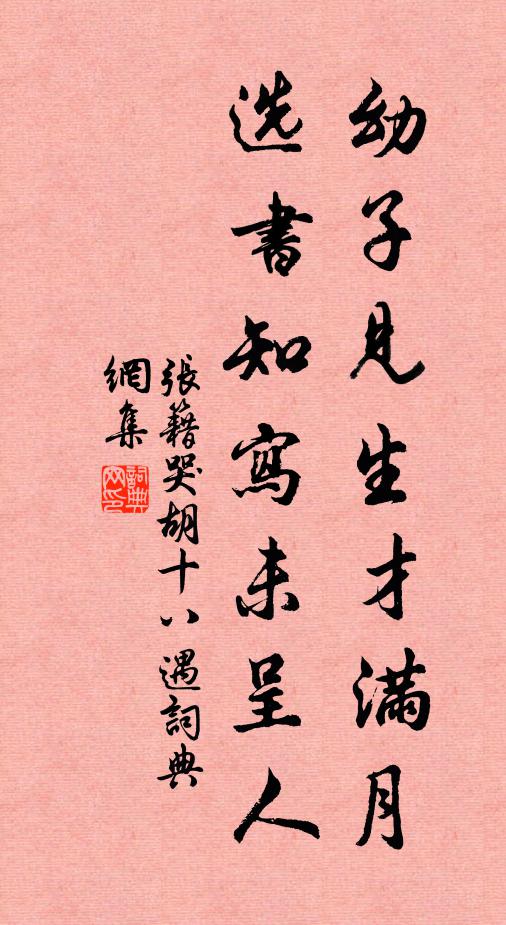 幼子見生才滿月
选書知寫未呈人
張籍哭胡十八遇詞典
網集
詞典
网印